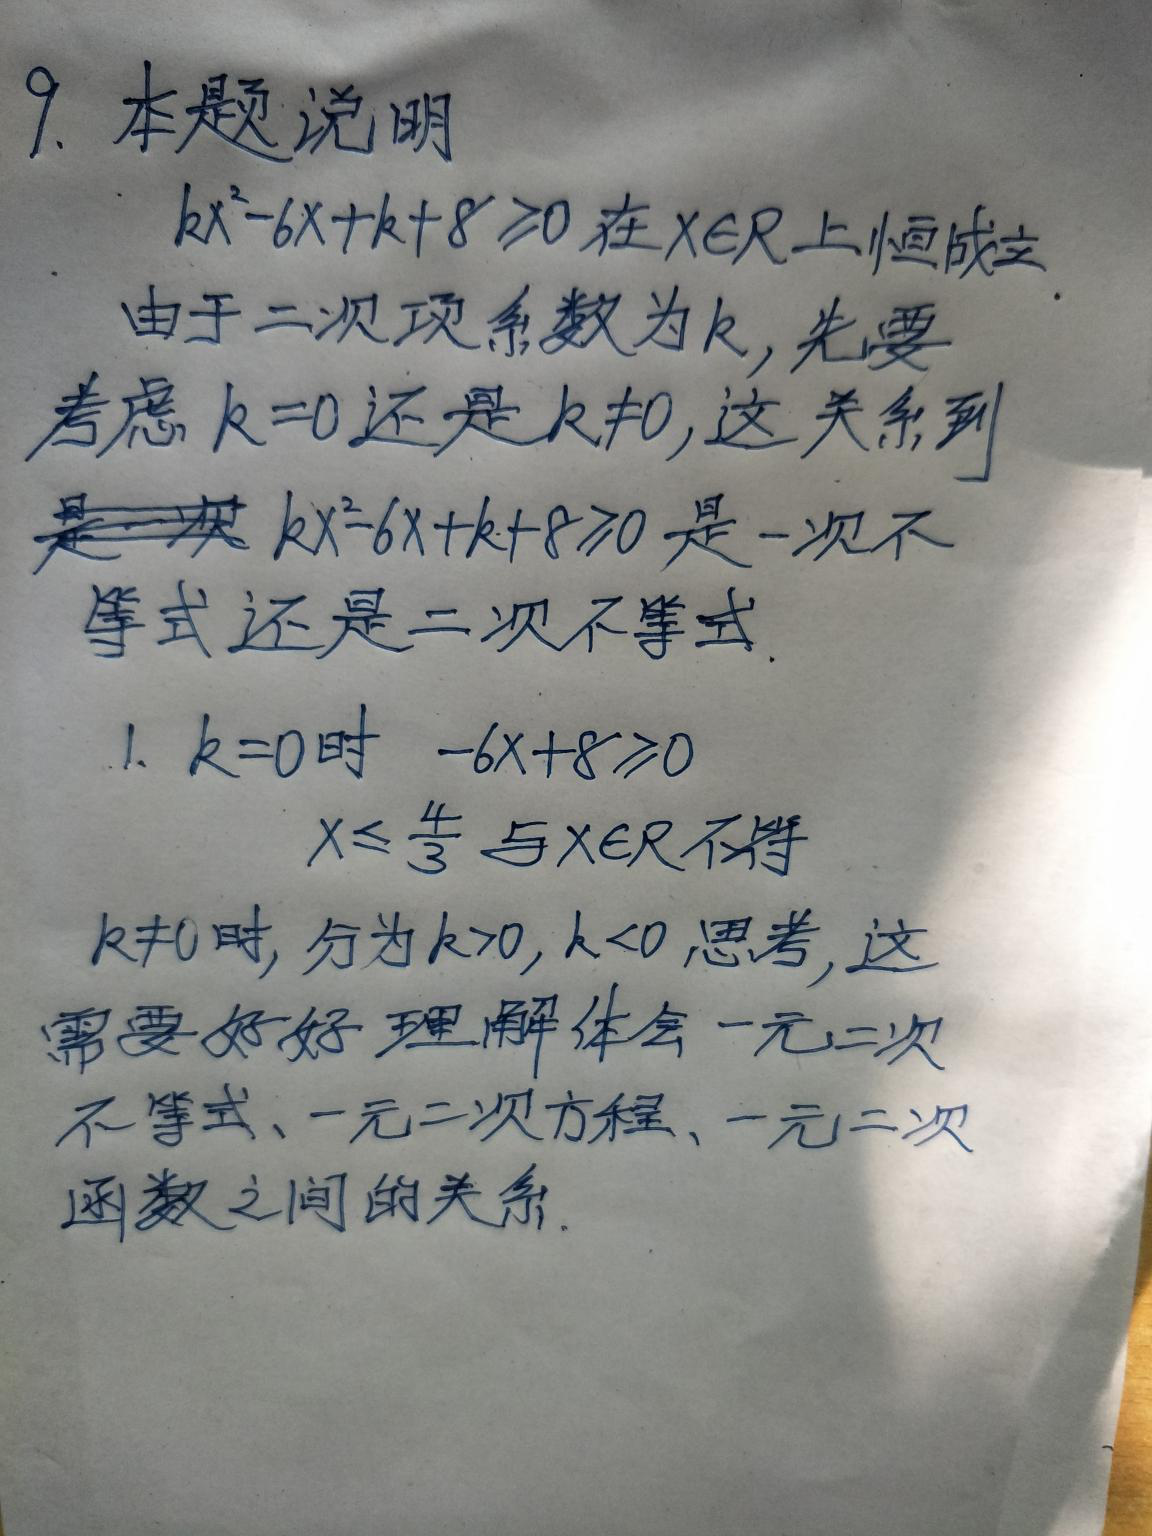 9. 本题说明
kx²-6x+k+8≥0 在 x∈R 上恒成立.
由于二次项系数为k,先要
考虑 k=0 还是 k≠0,这关系到
是一次 kx²-6x+k+8≥0 是一次不
等式还是二次不等式.
1. k=0时 -6x+8≥0
x≤4/3 与x∈R不符
k≠0时,分为k>0,k<0 思考,这
需要好好理解体会一元二次
不等式、一元二次方程、一元二次
函数之间的关系.